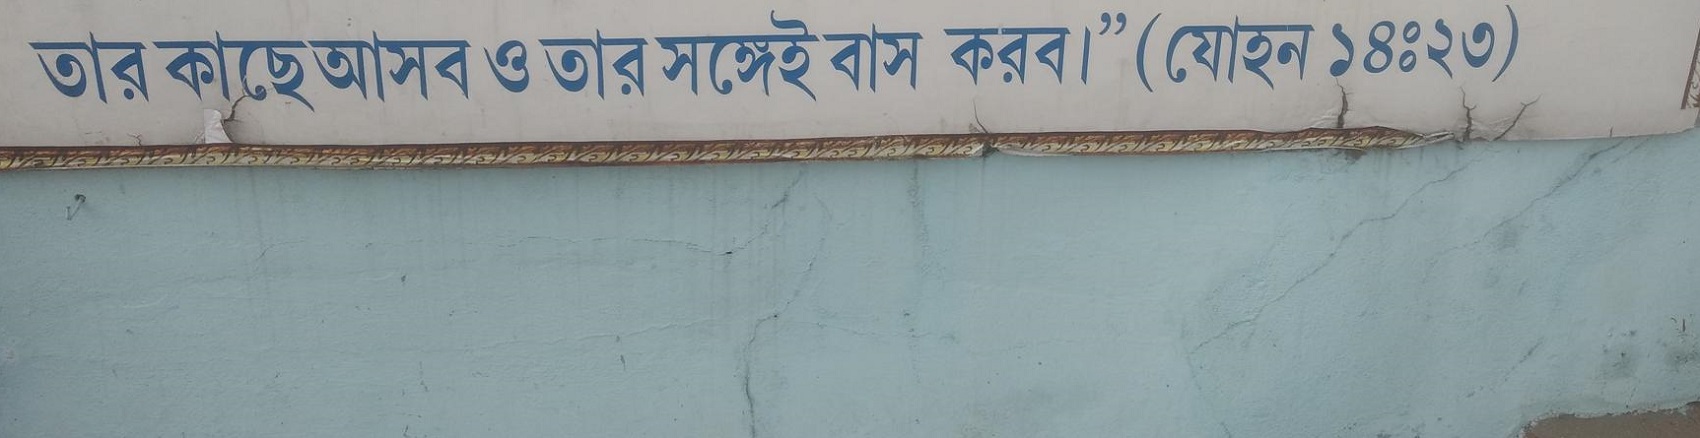 তার কাছে আসব ও তার সঙ্গেই বাস করব।” (যোহন ১৪ঃ২৩)